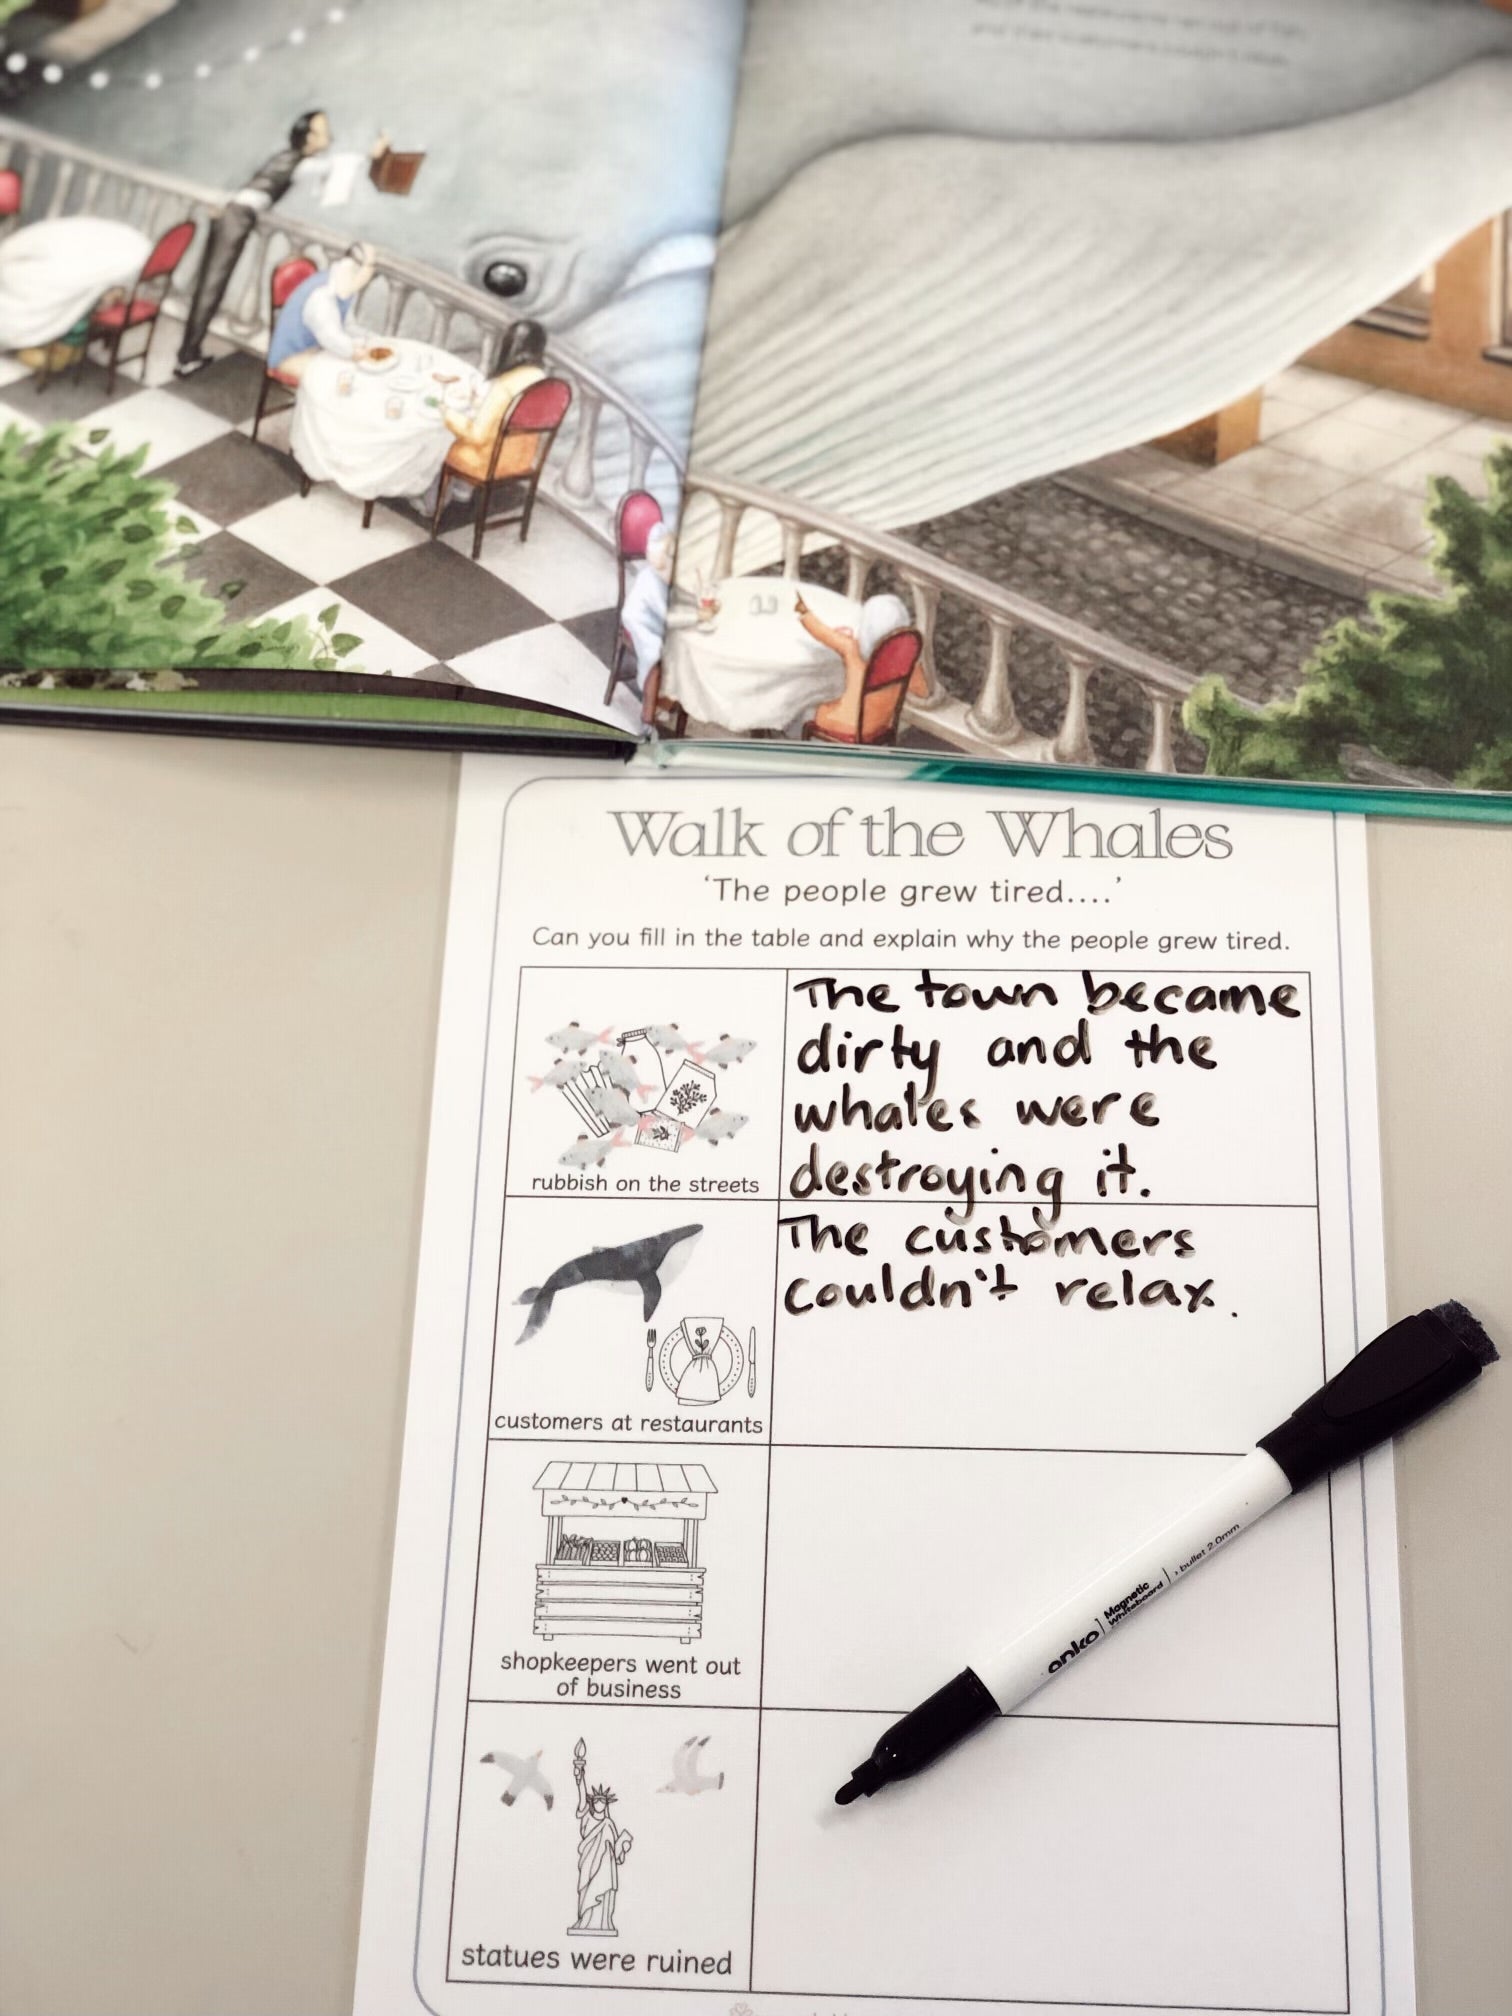 and their customers couldn't relax.
Walk of the Whales
'The people grew tired....'
Can you fill in the table and explain why the people grew tired.
rubbish on the streets
The town became
dirty and the
whales were
destroying it.
customers at restaurants
The customers
couldn't relax.
shopkeepers went out
of business
statues were ruined
anko
Magnetic
Whiteboard
bullet 2.0mm